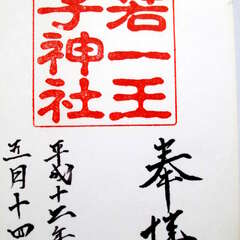 奉拝
若一王
子神社
平成十六年
五月十四